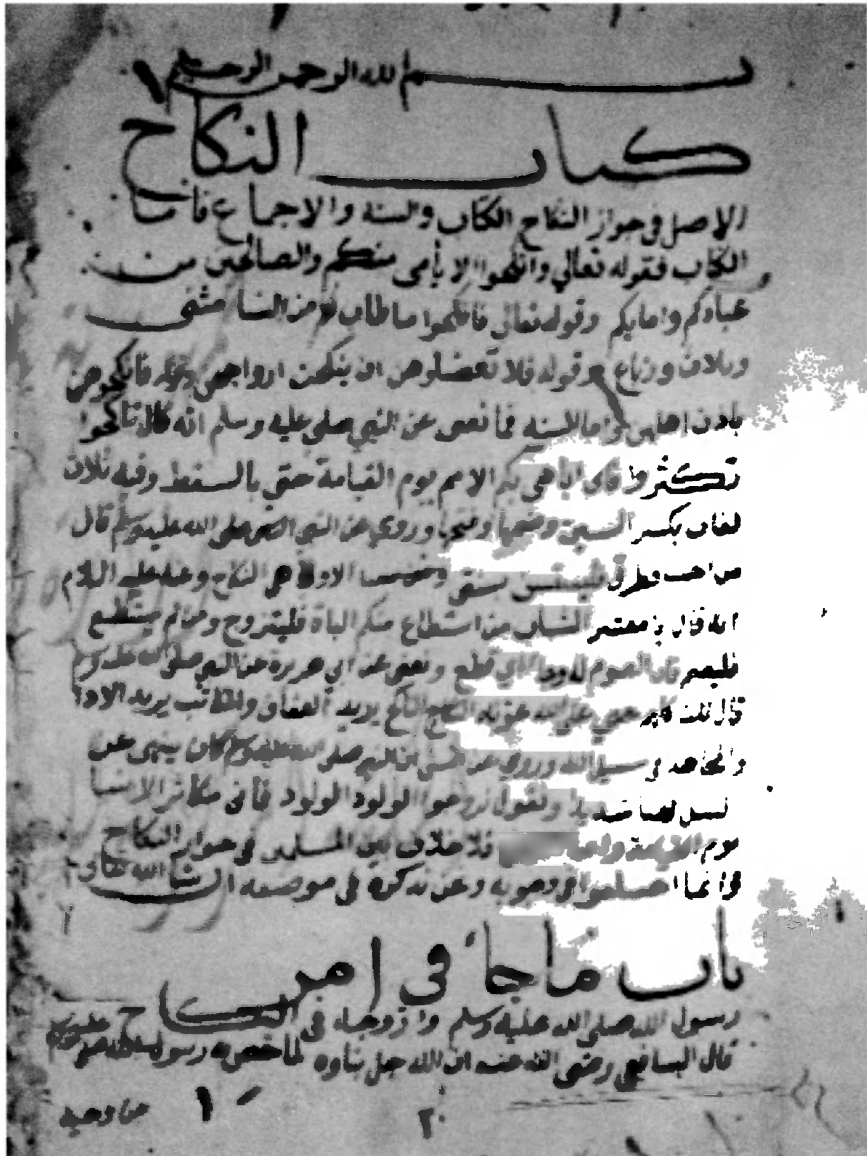 بسم الله الرحمن الرحيم
كتاب النكاح
الاصل في جواز النكاح الكتاب والسنة والاجماع فاما
الكتاب فقوله تعالى وانكحوا الايامى منكم والصالحين من
عبادكم وامايكم وقوله تعالى فانكحوا ما طاب لكم من النسا مثنى
وثلاث ورباع وقوله فلا تعضلوهن ان ينكحن ازواجهن وقوله فانكحوهن
باذن اهلهن واما السنه فما عن النبي صلى عليه وسلم انه قال تناكحوا
تكثروا فاني اباهي بكم الامم يوم القيامة حتى بالسقط وفيه ثلاث
لغات بكسر السين وضمها وفتحها وروي عن النبي صلى الله عليه وسلم قال
من احب فطرتي فليستن بسنتي الا وهي النكاح وعنه عليه السلام
انه قال يا معشر الشباب من استطاع منكم الباة فليتزوج ومن لم يستطع
فليصم فان الصوم له وجا اي قطع عن ابي هريرة عن النبي صلى الله عليه وسلم
قال ثلث حق على الله عونه الناكح يريد العفاف والمكاتب يريد الادا
والمجاهد في سبيل الله وروي عن ان النبي صلى الله عليه وسلم كان ينهى عن
شديدا ويقول تزوجوا الولود الودود فاني مكاثر الانبيا
يوم القيمة فلا خلاف بين المسلمين في جواز النكاح
وانما اختلفوا في وجوبه ونحن نذكره في موضعه ان شا الله تعالى
باب ما جا في امر
رسول الله صلى الله عليه وسلم وازوجه في النكاح
قال الشافعي رضى الله عنه ان الله جل ثناوه لما خص به رسوله صلى الله عليه وسلم
من وحيه
١
٢